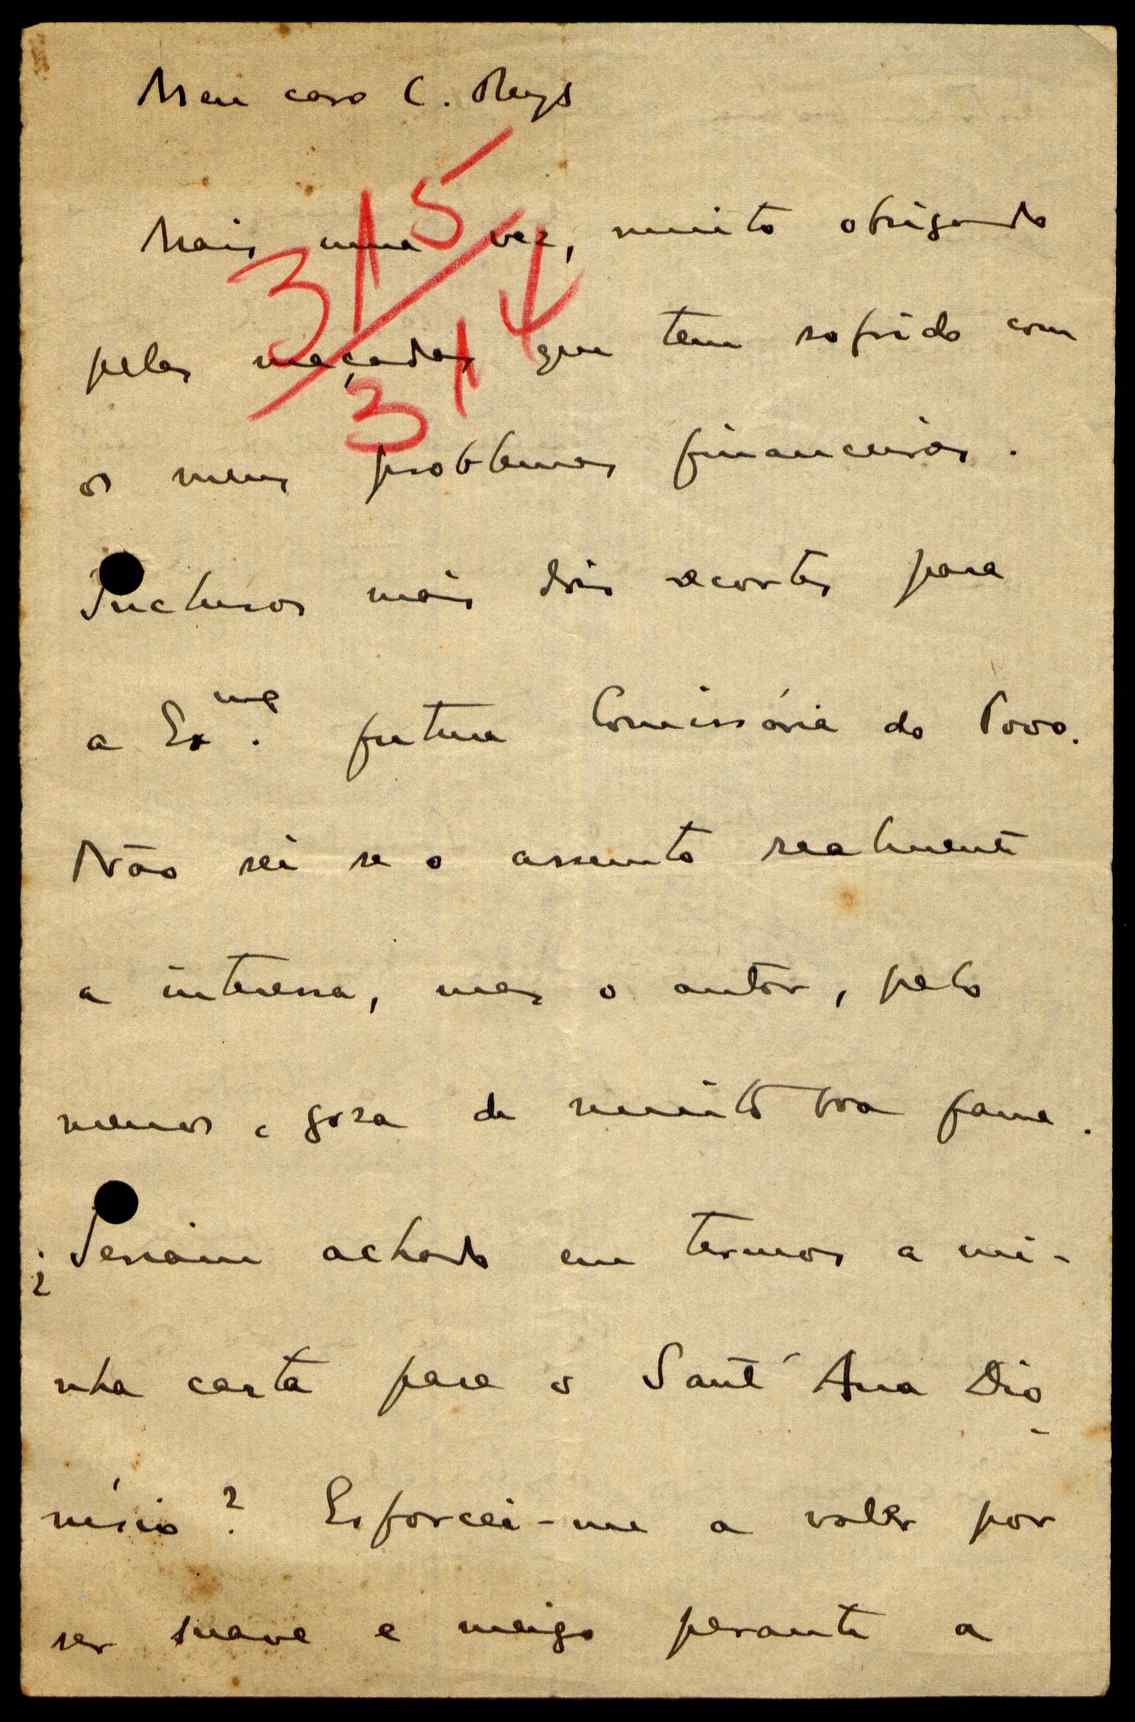 Meu caro C. Reys
315
314
Mais uma vez, muito obrigado
pelas maçadas que tem sofrido com
os meus problemas financeiros.
Inclusos mais dois recortes para
a Exma. futura Comissária do Povo.
Não sei se o assunto realmente
a interessa, mas o autor, pelo
menos, goza de muito boa fama.
¿Teriam achado em termos a mi-
nha carta para o Sant'Ana Dio-
nísio? Esforcei-me a valer por
ser suave e meigo perante a